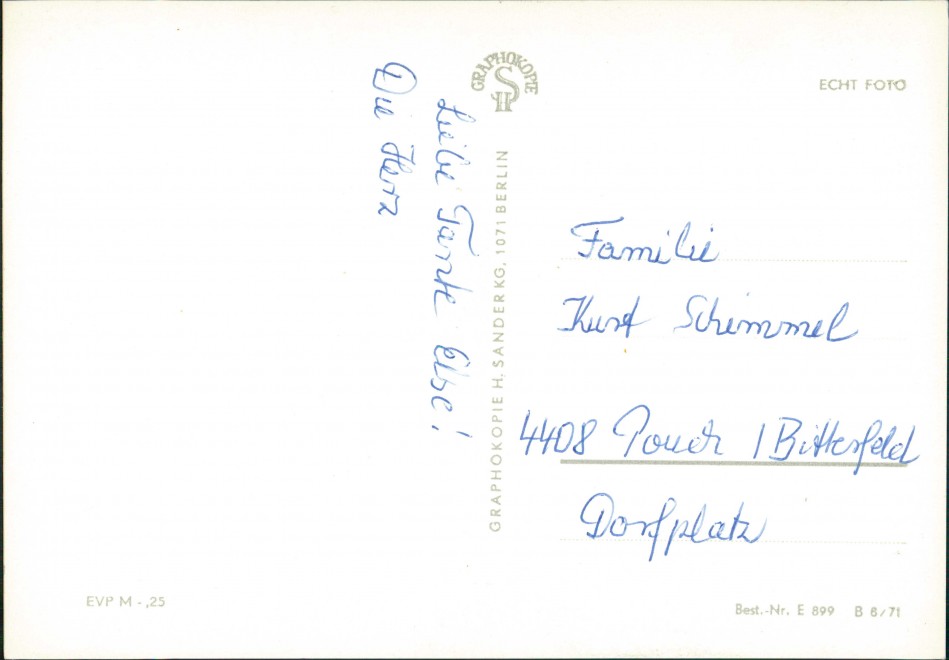 GRAPHOKOPIE
H S
ECHT FOTO
Liebe Tante Else!
Die Herz
GRAPHOKOPIE H. SANDER KG, 1071 BERLIN
Familie
Kurt Schimmel
4408 Pouch / Bitterfeld
Dorfplatz
EVP M -,25
Best.-Nr. E 899 B 6/71